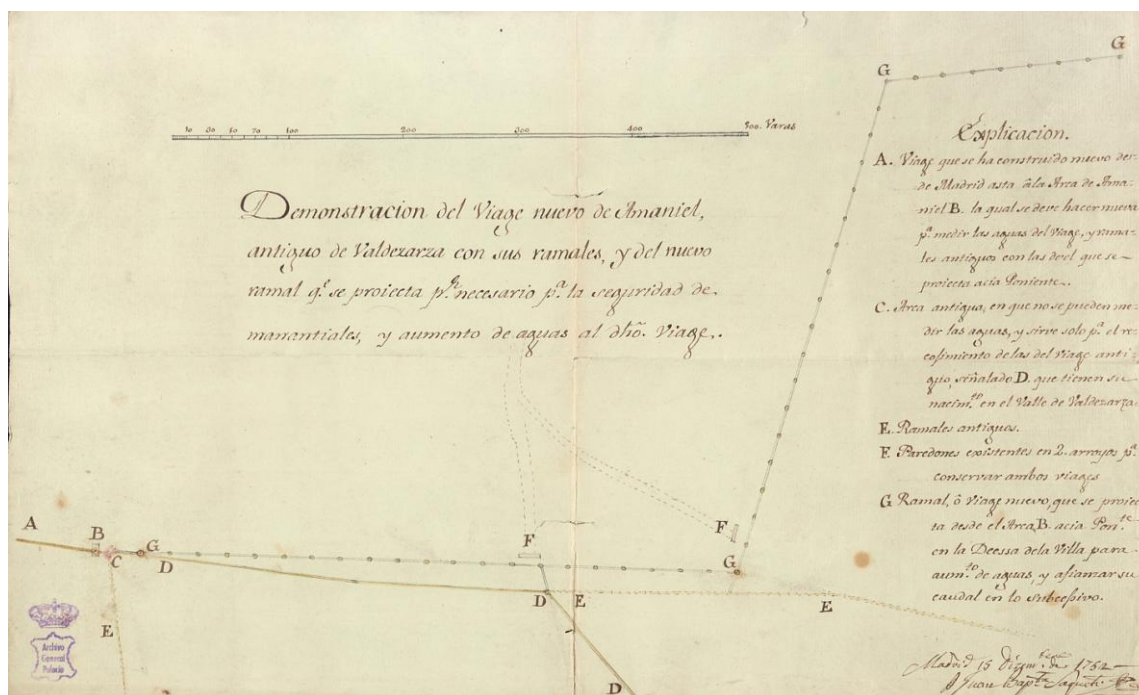 10 30 50 70 100 200 300 400 500. Varas
Demonstracion del Viage nuevo de Amaniel,
antiguo de Valdezarza con sus ramales, y del nuevo
ramal q.e se proiecta p.r necesario p.a la seguridad de
manantiales, y aumento de aguas al dho. Viage,.
Explicacion.
A. Viage que se ha construido nuevo des-
de Madrid asta â la Arca de Ama-
niel B. la qual se deve hacer nueva
p.a medir las aguas del Viage, y rama-
les antiguos con las de el que se
proiecta acia Poniente.
C. Arca antigua, en que no se pueden me-
dir las aguas, y sirve solo p.a el re-
cosimiento de las del Viage anti-
guo, señalado D. que tienen su
nacim.to en el Valle de Valdezarza.
E. Ramales antiguos.
F. Paredones existentes en 2. arroyos p.a
conservar ambos viages
G. Ramal, ô Viage nuevo, que se proiec-
ta desde el Arca, B. acia Pon.te
en la Deessa de la Villa para
aum.to de aguas, y afianzar su
caudal en lo subcessivo.
G
G
A
B
C
G
D
E
F
F
G
D
E
E
D
Archivo
General
Palacio
Madrid 15 Diciem.e de 1752
Juan Bap.ta Saqueti